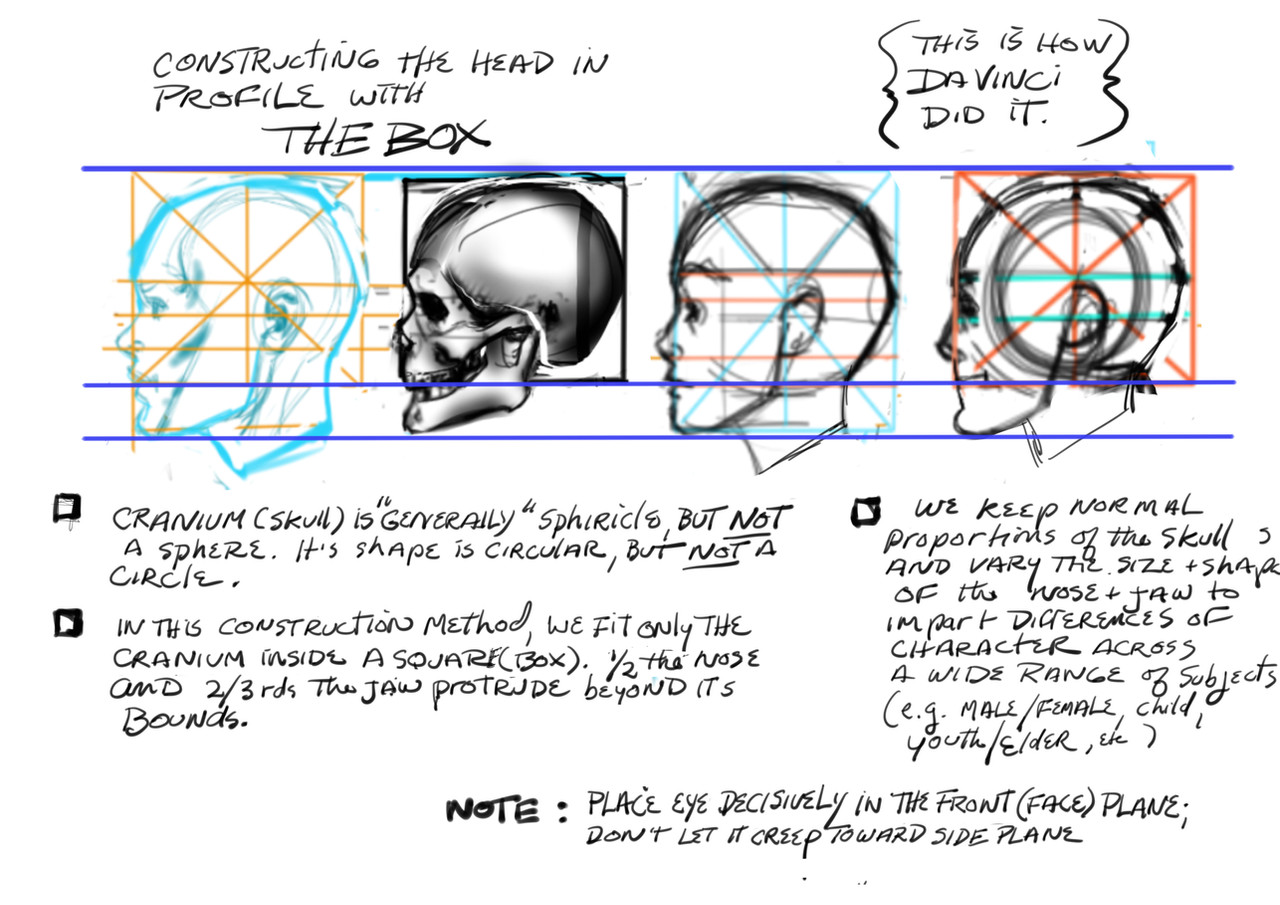 CONSTRUCTING THE HEAD IN
PROFILE WITH
THE BOX
THIS IS HOW
DA VINCI
DID IT.
CRANIUM (SKULL) IS "GENERALLY" SPHIRICLE, BUT NOT
A SPHERE. IT'S SHAPE IS CIRCULAR, BUT NOT A
CIRCLE.
IN THIS CONSTRUCTION METHOD, WE FIT ONLY THE
CRANIUM INSIDE A SQUARE (BOX). 1/2 the NOSE
AND 2/3 rds THE JAW PROTRUDE beyOND ITS
BOUNDS.
WE KEEP NORMAL
proportins of the Skull s
AND VARY THE SIZE + shape
OF the NOSE + JAW to
impart DIFFERENCES OF
CHARACTER ACROSS
A WIDE RANGE of Subjects
(e.g. MALE/FEMALE, child,
youth/ElDER, etc )
NOTE: PLACE EYE DECISIVELY IN THE FRONT (FACE) PLANE;
DON'T LET IT CREEP TOWARD SIDE PLANE